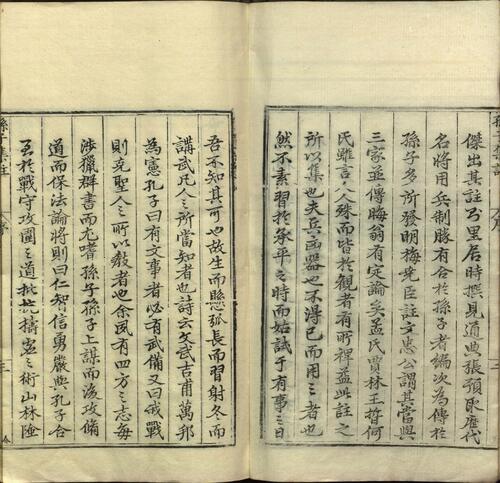 傑出其註里居時撰見通典張預取歷代
名將用兵制勝有合於孫子者編次為傳於
孫子多所發明梅堯臣註文忠公謂其當與
三家並傳晦翁有定論矣孟氏賈林王晳何
氏雖言人人殊而皆於觀者有所裨益此註之
所以集也夫兵凶器也不得已而用之者也
然不素習於承平之時而姑試于有事之日
吾不知其可也故生而懸弧長而習射冬而
講武凡人之所當知者也詩云文武吉甫萬邦
為憲孔子曰有文事者必有武備又曰戒戰
則克聖人之所以教者也余夙有四方之志每
涉獵群書而尤嗜孫子孫子上謀而後攻脩
道而保法論將則曰仁智信勇嚴與孔子合
至於戰守攻圍之道批抗擣虛之術山林險
孫子集註 序 三